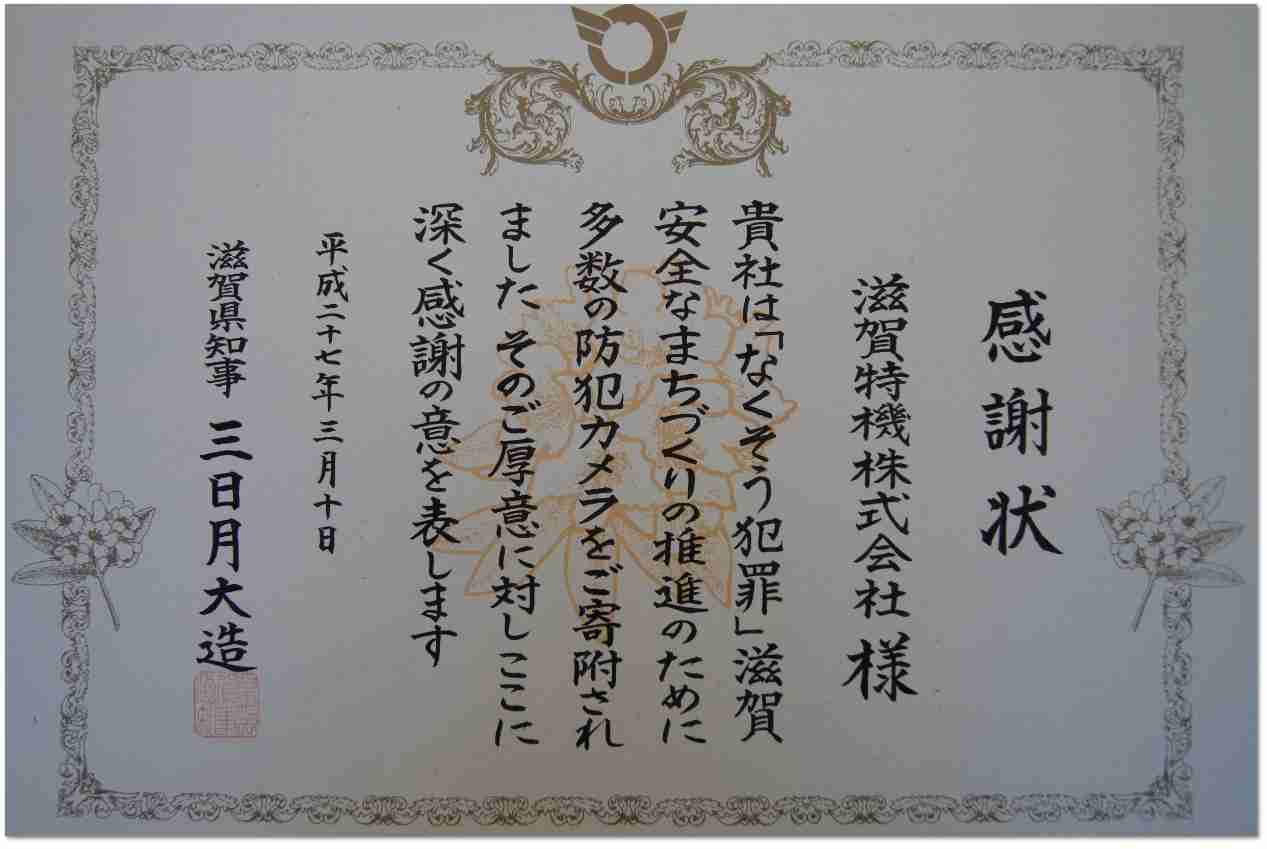 感謝状
滋賀特機株式会社 様
貴社は「なくそう犯罪」滋賀
安全なまちづくりの推進のために
多数の防犯カメラをご寄附され
ました そのご厚意に対しここに
深く感謝の意を表します
平成二十七年三月十日
滋賀県知事 三日月大造